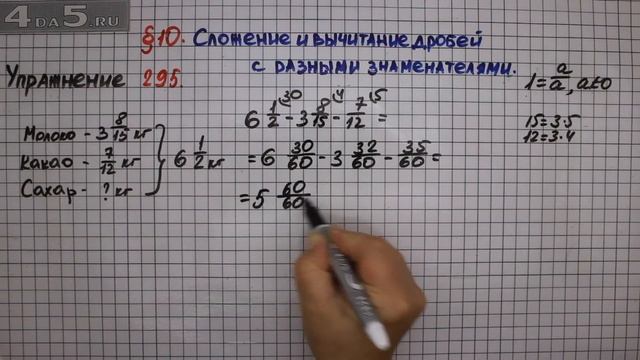 4DA5.RU
§10. Сложение и вычитание дробей
с разными знаменателями.
Упражнение 295.
1=a/a, a≠0
15=3·5
12=3·4
Молоко - 3 8/15 кг
Какао - 7/12 кг
Сахар - ? кг
6 1/2 кг
6 1/2 (30 - 3 8/15 (4 - 7/12 (5 =
= 6 30/60 - 3 32/60 - 35/60 =
= 5 60/60